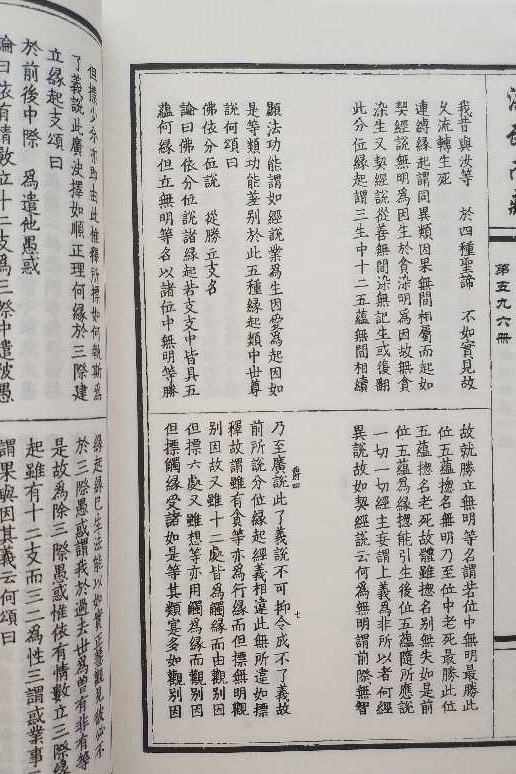 第五九六冊
我昔與汝等　於四種聖諦　不如實見故
久流轉生死
連縛緣起謂同異類因果無間相屬而起如
契經說無明為因生於貪染明為因故無貪
染生又契經說從善無間染無記生或復翻
此分位緣起謂三生中十二五蘊無間相續
顯法功能謂如經說業為生因愛為起因如
是等類功能差別於此五種緣起類中世尊
說何頌曰
佛依分位說　從勝立支名
論曰佛依分位說諸緣起若支支中皆具五
蘊何緣但立無明等名以諸位中無明等勝
故就勝立無明等名謂若位中無明最勝此
位五蘊揔名無明乃至位中老死最勝此位
五蘊揔名老死故體雖揔名別無失如是前
位五蘊為緣揔能引生後位五蘊隨所應說
一切一切經主妄謂上義為非所以者何經
異說故如契經說云何為無明謂前際無智
爵四　七
乃至廣說此了義說不可抑令成不了義故
前所說分位緣起經義相違此無所違如標
釋故謂雖有貪等亦為行緣而但標無明觀
別因故又雖十二處皆為觸緣而由觀別因
但標六處又雖想等亦用觸為緣而觀別因
但標觸緣受諸如是等其類寔多如觀別因
但標少分亦即由此惟釋所標如何執斯為
了義說此廣決擇如順正理何緣於三際建
立緣起支頌曰
於前後中際　為遣他愚惑
論曰依有情數立十二支為三際中遣彼愚
緣起緣已生法能以如實正慧觀見彼必不
於三際愚惑謂我於過去世為曾有非有等
是故為除三際愚惑惟依有情數立三際緣
起雖有十二支而三二為性三謂惑業事
謂果與因其義云何頌曰